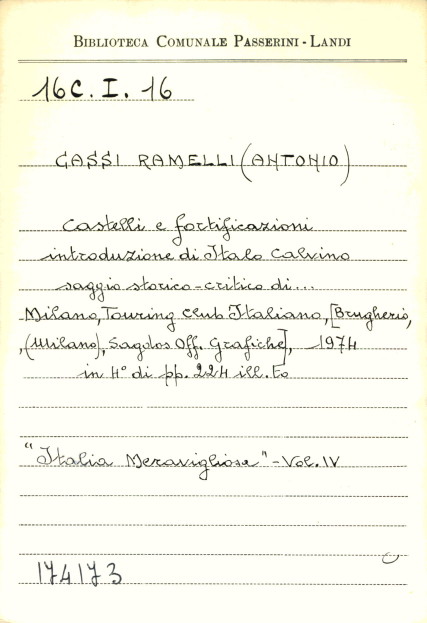 BIBLIOTECA COMUNALE PASSERINI - LANDI
16C. I. 16
GASSI RAMELLI (ANTONIO)
Castelli e fortificazioni
introduzione di Italo Calvino
saggio storico-critico di...
Milano, Touring Club Italiano, [Brugherio,
(Milano), Sagdos Off. Grafiche], 1974
in 4° di pp. 224 ill.to
"Italia Meravigliosa" - Vol. IV
174173